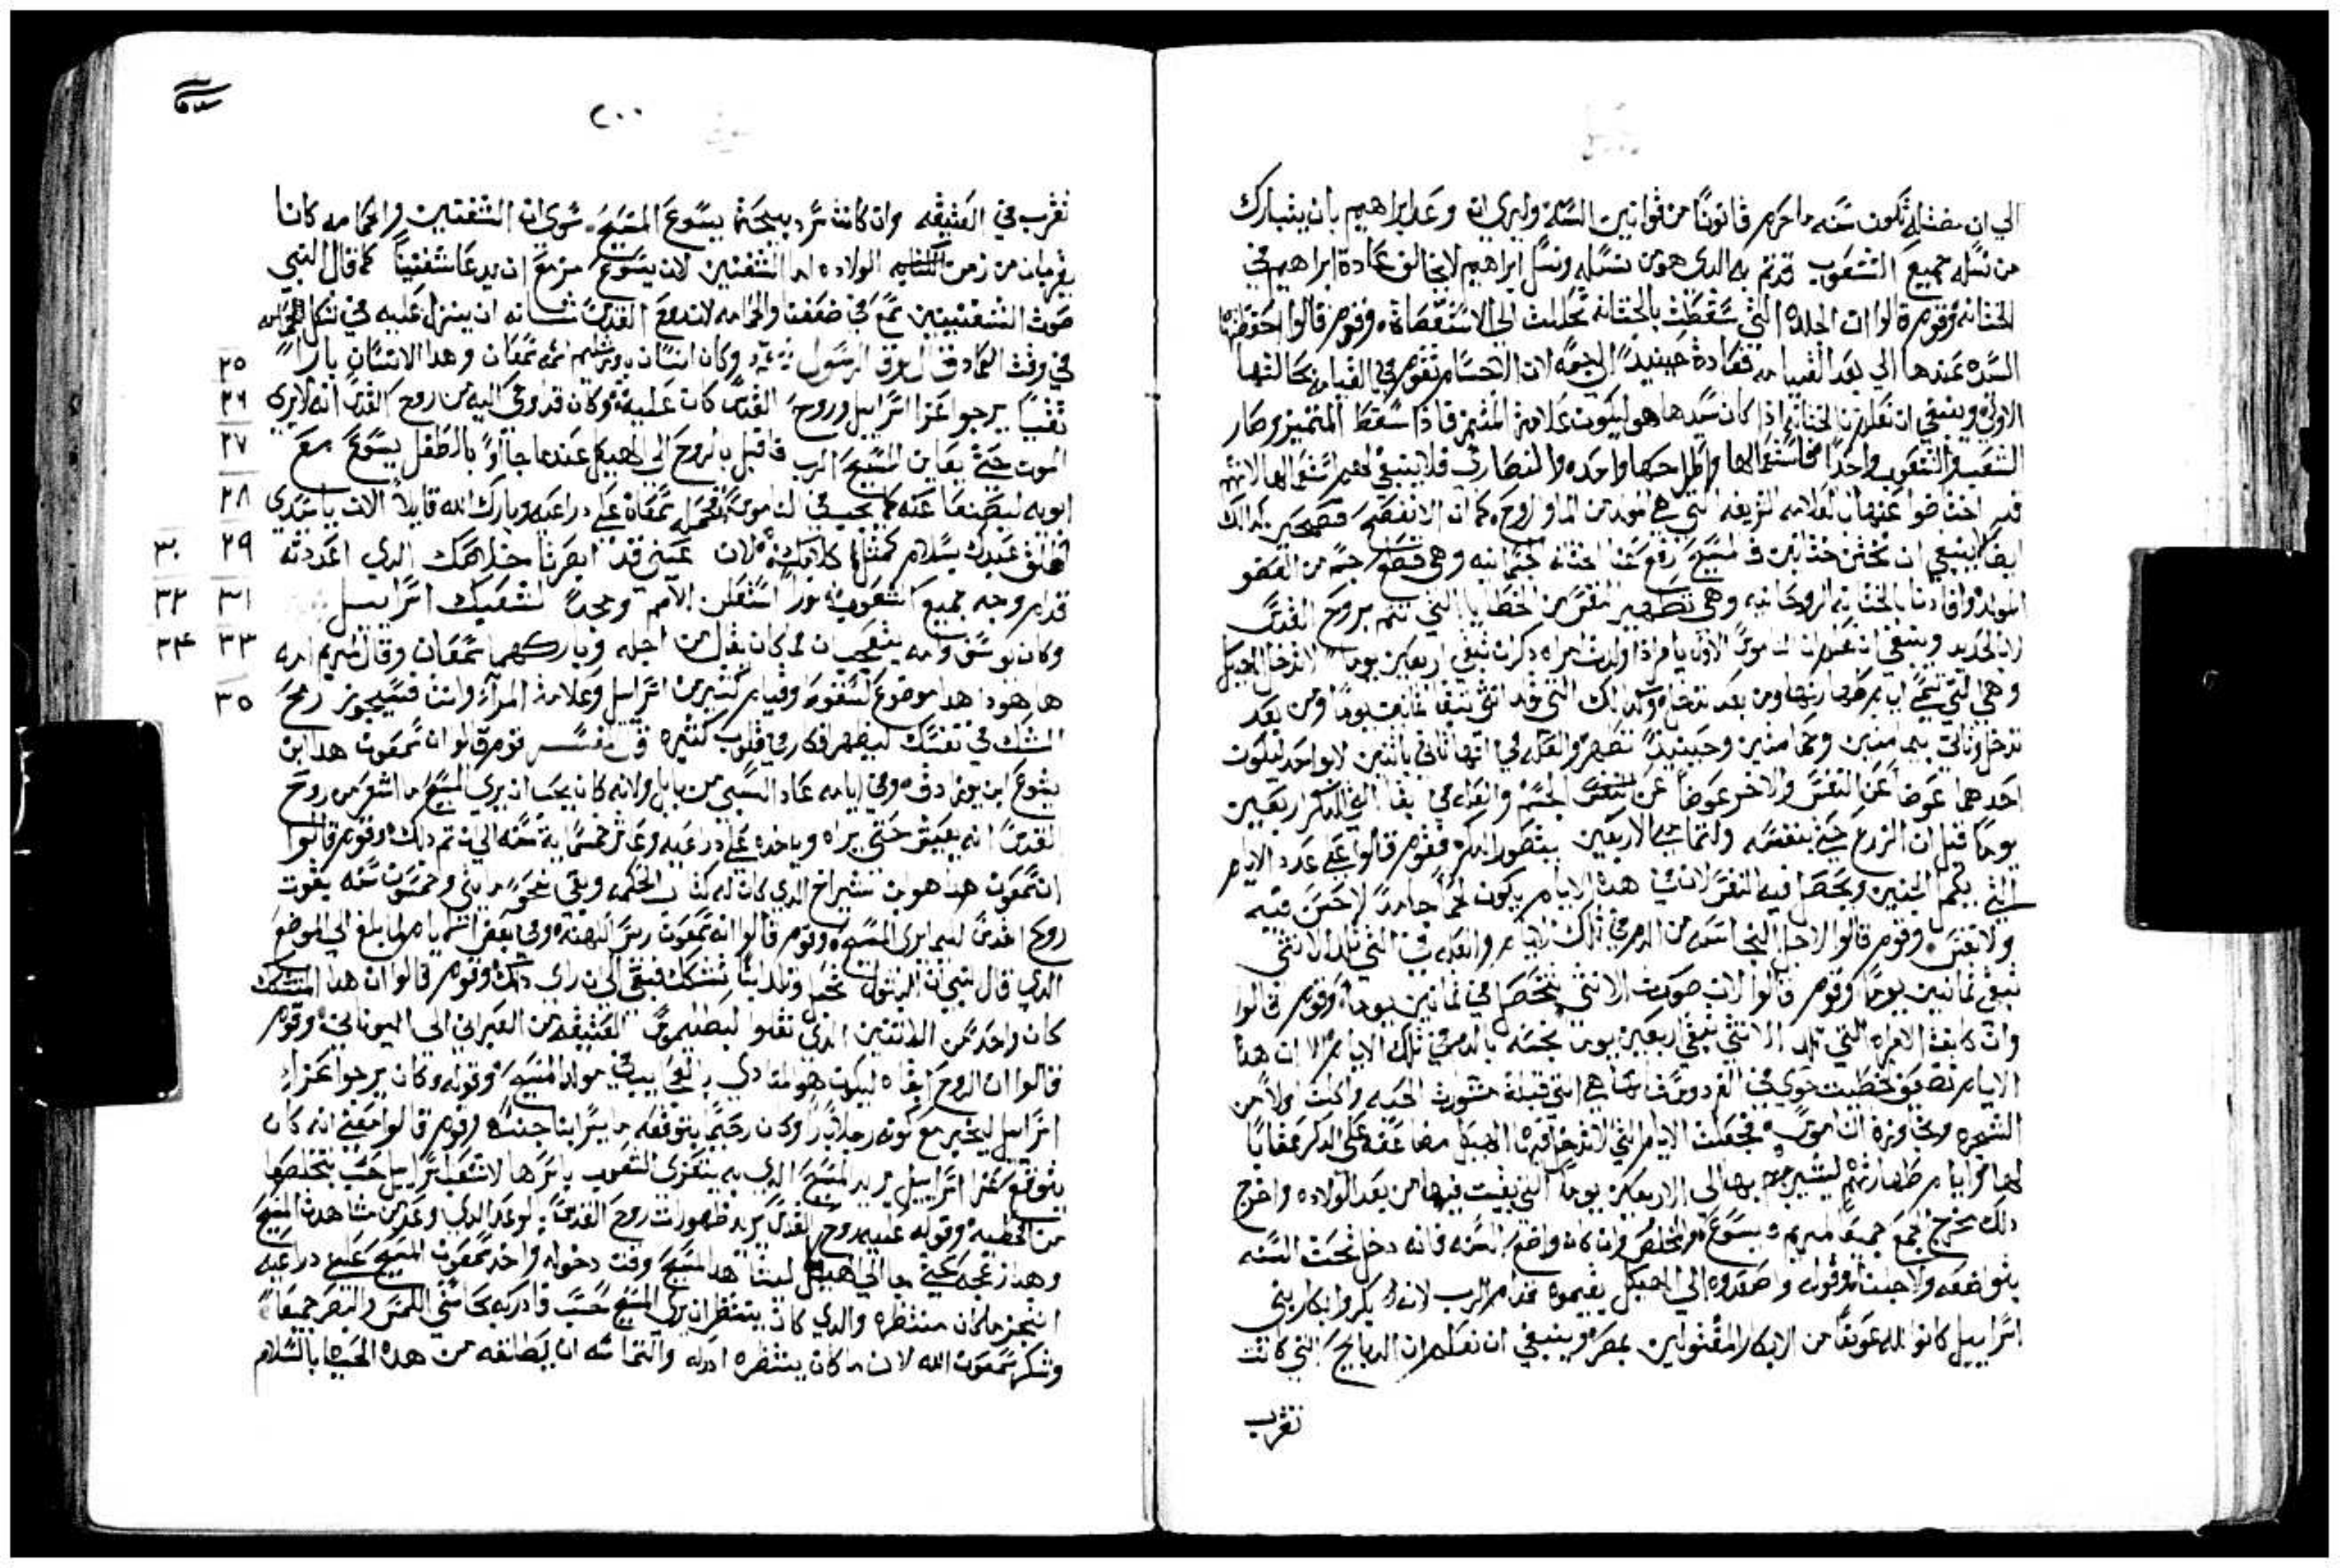 الي ان بمثله تكون سنه ما حرم قانونا من قوانين السنة وليري ان وعد ابراهيم بان يتبارك
من نسله جميع الشعوب قد تم به الدي هو من نسله ونسل ابراهيم لا يخالف عادة ابراهيم في
الختانه وقوم قالوا ان الجلده التي سقطت بالختانه تحللت الي الاستقصاة وقوم قالوا احتفظتها
السيده عندها الي بعد القيامه فعادة حينيد الي جسمه لان الاجسام تقوم في القيامه بحالتها
الاولي وينبغي ان تعلم ان الختانه اذا كان سببها هو ليكون علامة المتميز فاذا سقط المتميز وصار
الشعب والشعوب واحدا فاستعمالها واطراحها واحده والنصاري فلا ينبغي لهم استعمالها لانهم
قد اعتاضوا عنها بالعلامه الشريفه التي هي المولد من الما والروح كما ان الافصح كدالك
ايضا لا ينبغي ان نختتن ختانين فالمسيح رفع عنا ختانه جسمانيه وهي قطع جسم من العضو
المولد وافادنا بالختانه الروحانيه وهي تطهير النفس من الخطايا التي تتم بروح القدس
وينبغي ان تعلم ان الناموس الاول يامر اذا ولدت امراه دكر ان تبقي اربعين يوما لا تدخل الهيكل
وهي التي تسمي ايام طهارتها ومن بعد تدخل وكدالك التي تلد انثي تبقا ثمانين يوما ومن بعد
تدخل وتاتي بيمامتين وحمامتين وحينيد تطهر والعله في انها تاتي باثنين لا بواحد ليكون
احدهما عوضا عن النفس والاخر عوضا عن الجسم والعله في بقا الدكر اربعين
يوما قيل ان الزرع حي بنفسه ولتمام الاربعين يتصور الدكر فقوم قالوا علي عدد الايام
التي يكمل الجنين ويحصل فيه النفس لان في هده الايام يكون لحما جامدا لا حس فيه
ولا نفس وقوم قالوا لاجل النجاسه من الدم في تلك الايام والعله في التي تلد الانثي
تبقي ثمانين يوما وقوم قالوا لان صورت الانثي تتحصل في ثمانين يوما وقوم قالوا
وان كانت الامراه التي تلد الانثي تبقي اربعين يوما نجسه بالدم في تلك الايام الا ان هده
الايام تضعف لخطيت حوي في الفردوس فانها هي التي قبلت مشورت الحيه واكلت اولا من
الشجره وتجاوزة الناموس فجعلت الايام التي لا تدخل فيها الهيكل مضاعفه علي الدكر عقابا
لها وايام طهارتهم ليشير بها الي الاربعين يوما التي بقيت فيها من بعد الولاده واخرج
دلك مخرج الجمع جميعا لمريم ويسوع والمخلص وان كان واضع السنه فانه دخل تحت السنه
بتواضعه ولاجلنا وقوله واصعدوه الي الهيكل ليقيموه قدام الرب لانه بكر وابكار بني
اسراييل كانوا لله عوضا من الابكار المقتولين بمصر وينبغي ان تعلم ان الدبايح التي كانت
تقرب
٢٠٠
تقرب في العتيقه وان كانت ترد بمجية يسوع المسيح سوي ان الشفنين والحمامه كانا
يقربان من زمن الولاده اما الشفنين لان يسوع مزمع ان يدعا شفنينا كما قال النبي
صوت الشفنين سمع في ضفتنا والحمامه لان روح القدس شانه ان ينزل عليه في شكل الحمامه
في وقت العماد قال لوقا الرسول وكان انسان باورشليم اسمه سمعان وهدا الانسان بارا ٢٥
تقيا يرجوا عزا اسراييل وروح القدس كان عليه وكان قد اوحي اليه من روح القدس انه لا يري ٢٦
الموت حتي يعاين المسيح الرب فاقبل بالروح الي الهيكل عندما جاا بالطفل يسوع مع ٢٧
ابويه ليصنعا عنه كما يجب في الناموس فحمله سمعان علي دراعيه وبارك الله قايلا الان ياسيدي ٢٨
تطلق عبدك بسلام كمثل كلامك لان عيني قد ابصرتا خلاصك الدي اعددته ٢٩ ٣٠
قدام وجه جميع الشعوب نورا استعلن الامم ومجدا لشعبك اسراييل ٣١ ٣٢
وكان يوسف وامه يتعجبان لما كان يقال من اجله وباركهما سمعان وقال لمريم امه ٣٣ ٣٤
ها هودا هدا موضوع لسقوط وقيام كثير من اسراييل وعلامة المرآة وانت فسيجوز رمح ٣٥
الشك في نفسك ليظهر افكار في قلوب كثيره قال المفسر قوم قالوا ان سمعون هدا ابن
يشوع ابن يوزادق وفي ايامه عاد السبي من بابل ولانه كان يحب ان يري المسيح ما اشعر من روح
القدس انه يعيق حتي يراه وياخده علي دراعيه وعاش خمسماية سنه الي ان تم دلك وقوم قالوا
ان سمعون هدا هو بن شيراخ الدي كان له كتاب الحكمه وبقي نحو مايتي وخمسون سنه بقوت
روح القدس ليما يري المسيح وقوم قالوا انه سمعون ريس الكهنه وفي بعض الايام لما بلغ الي الموضع
الدي قال نبي ان البتول تحبل وتلد ابنا تشكك فبقي الي ان راي دلك وقوم قالوا ان هدا المتشكك
كان واحد من الدين نقلوا لبطليموس العتيقه من العبراني الي اليوناني وقوم
قالوا ان الروح ابقاه ليكون هو المنادي بالحق يبان مولد المسيح وقوله وكان يرجوا عزاء
اسراييل ليخبر مع كونه رجلا بارا وكان رحيما يتوقعه ما يسر ابنا جنسه وقوم قالوا معني انه كان
يتوقع عزا اسراييل يريد المسيح الدي به يتعزي الشعوب باسرها لا شعب اسراييل حسب بتخلصها
من الخطيه وقوله عليه روح القدس يريد ظهورات روح القدس بالوعد الدي وعد من مشاهدت المسيح
وهدا ازعجه مجية بها الي الهيكل ليشاهد المسيح وقت دخوله واخد سمعون المسيح علي دراعيه
انتجز ما كان منتظره والدي كان ينتظر ان يري المسيح حسب فادركه بحاستي اللمس والبصر جميعا
وشكر سمعون الله لان ما كان ينتظره ادركه والتماسه ان يطلقه من هده الحياه بالسلام